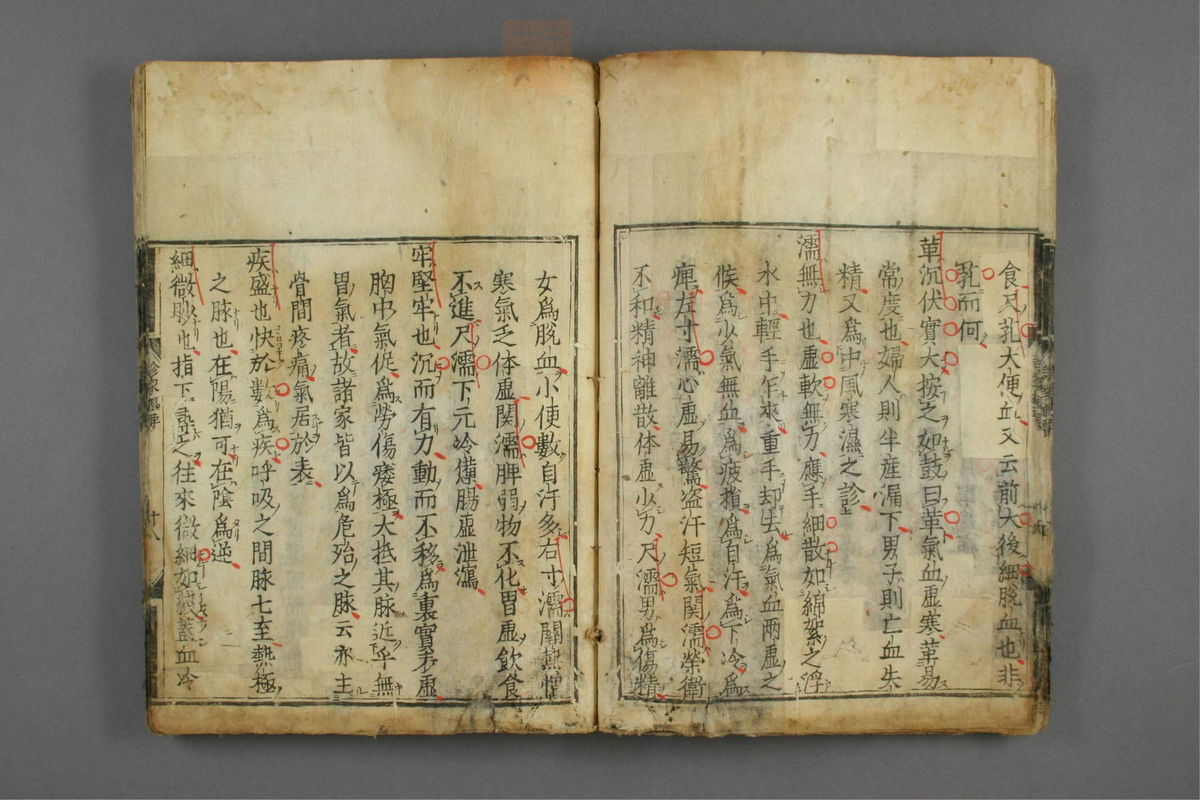 食尺芤大便血又云前大後細脫血也非
芤而何
革沉伏實大按之如鼓曰革氣血虛寒革易
常度也婦人則半産漏下男子則亡血失
精又爲中風寒濕之診
濡無力也虛軟無力應手細散如綿絮之浮
水中輕手乍來重手却去爲氣血兩虛之
候爲少氣無血爲疲損爲自汗爲下冷爲
痺左寸濡心虛易驚盗汗短氣関濡榮衛
不和精神離散体虛少力尺濡男爲傷精
女爲脫血小便數自汗多右寸濡關熱憎
寒氣乏体虛関濡脾弱物不化胃虛飲食
不進尺濡下元冷憊腸虛泄瀉
牢堅牢也沉而有力動而不移爲裏實表虛
胸中氣促爲勞傷痿極大抵其脉近乎無
胃氣者故諸家皆以爲危殆之脉云亦主
骨間疼痛氣居於表
疾盛也快於數爲疾呼吸之間脉七至熱極
之脉也在陽猶可在陰爲逆
細微眇也指下尋之往來微細如線蓋血冷
診家樞要
十八